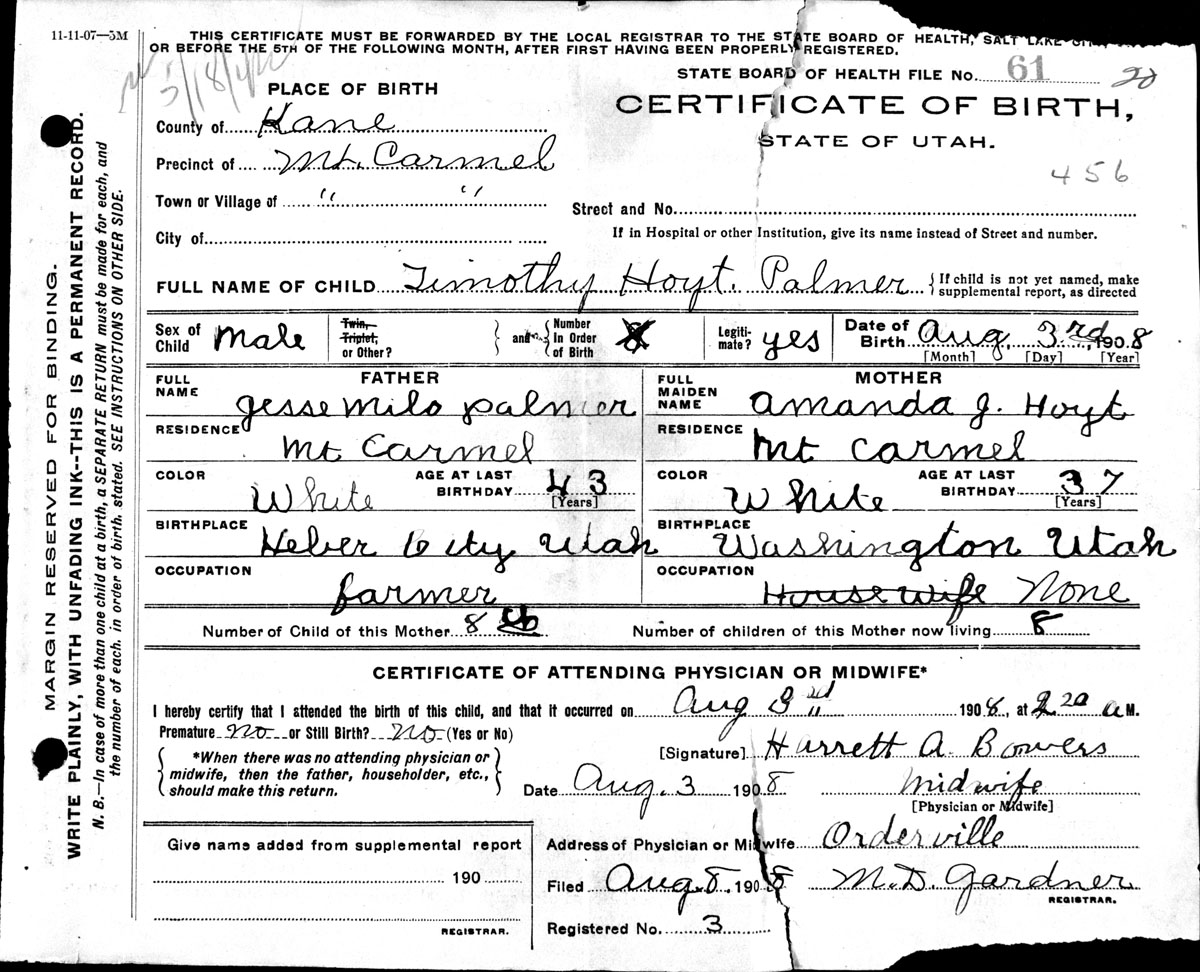 11-11-07—5M
THIS CERTIFICATE MUST BE FORWARDED BY THE LOCAL REGISTRAR TO THE STATE BOARD OF HEALTH, SALT LAKE
OR BEFORE THE 5TH OF THE FOLLOWING MONTH, AFTER FIRST HAVING BEEN PROPERLY REGISTERED.
STATE BOARD OF HEALTH FILE No. 61 20
PLACE OF BIRTH
CERTIFICATE OF BIRTH,
STATE OF UTAH.
456
County of Kane
Precinct of Mt. Carmel
Town or Village of " "
Street and No.
City of
If in Hospital or other Institution, give its name instead of Street and number.
FULL NAME OF CHILD Timothy Hoyt. Palmer {If child is not yet named, make
supplemental report, as directed
Sex of Child Male
Twin, Triplet, or Other?
and Number In Order of Birth 8
Legiti-mate? yes
Date of Birth Aug, 3rd, 1908
[Month] [Day] [Year]
FATHER
FULL NAME Jesse Milo Palmer
RESIDENCE Mt Carmel
COLOR White
AGE AT LAST BIRTHDAY 43 [Years]
BIRTHPLACE Heber City Utah
OCCUPATION farmer
MOTHER
FULL MAIDEN NAME Amanda J. Hoyt
RESIDENCE Mt Carmel
COLOR White
AGE AT LAST BIRTHDAY 37 [Years]
BIRTHPLACE Washington Utah
OCCUPATION Housewife None
Number of Child of this Mother 8th
Number of children of this Mother now living 8
CERTIFICATE OF ATTENDING PHYSICIAN OR MIDWIFE*
I hereby certify that I attended the birth of this child, and that it occurred on Aug 3rd 1908, at 2 20 a M.
Premature No or Still Birth? No (Yes or No)
*When there was no attending physician or
midwife, then the father, householder, etc.,
should make this return.
[Signature] Harrett A. Bowers
Date Aug. 3 1908
Midwife
[Physician or Midwife]
Address of Physician or Midwife Orderville
Filed Aug. 8. 1908 M.D. Gardner
REGISTRAR.
Registered No. 3
Give name added from supplemental report
190
REGISTRAR.
MARGIN RESERVED FOR BINDING.
WRITE PLAINLY, WITH UNFADING INK--THIS IS A PERMANENT RECORD.
N. B.—In case of more than one child at a birth, a SEPARATE RETURN must be made for each, and
the number of each, in order of birth, stated. SEE INSTRUCTIONS ON OTHER SIDE.